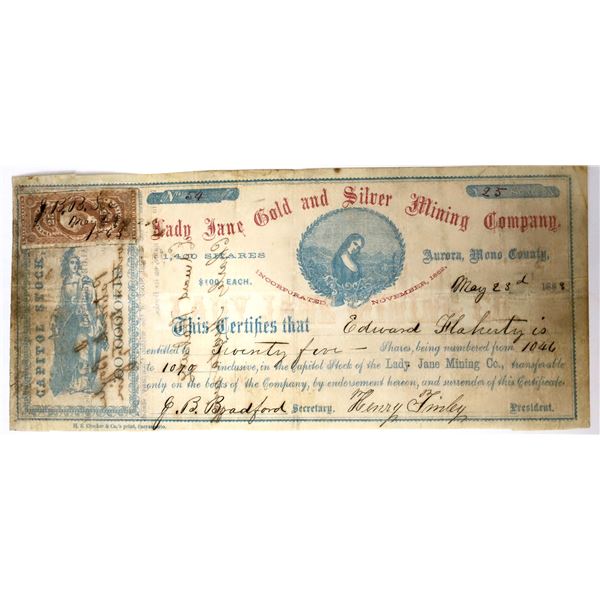 No. 54
25
Lady Jane Gold and Silver Mining Company,
1,400 SHARES
$100 EACH.
INCORPORATED NOVEMBER, 1862.
Aurora, Mono County,
May 23d 1863
This Certifies that Edward Flaherty is
entitled to Twenty five Shares, being numbered from 1046
to 1070 inclusive, in the Capitol Stock of the Lady Jane Mining Co., transferable
only on the books of the Company, by endorsement hereon, and surrender of this Certificate.
J. B. Bradford Secretary. Henry Finley President.
CAPITOL STOCK,
H. S. Crocker & Co.'s print, Sacramento.